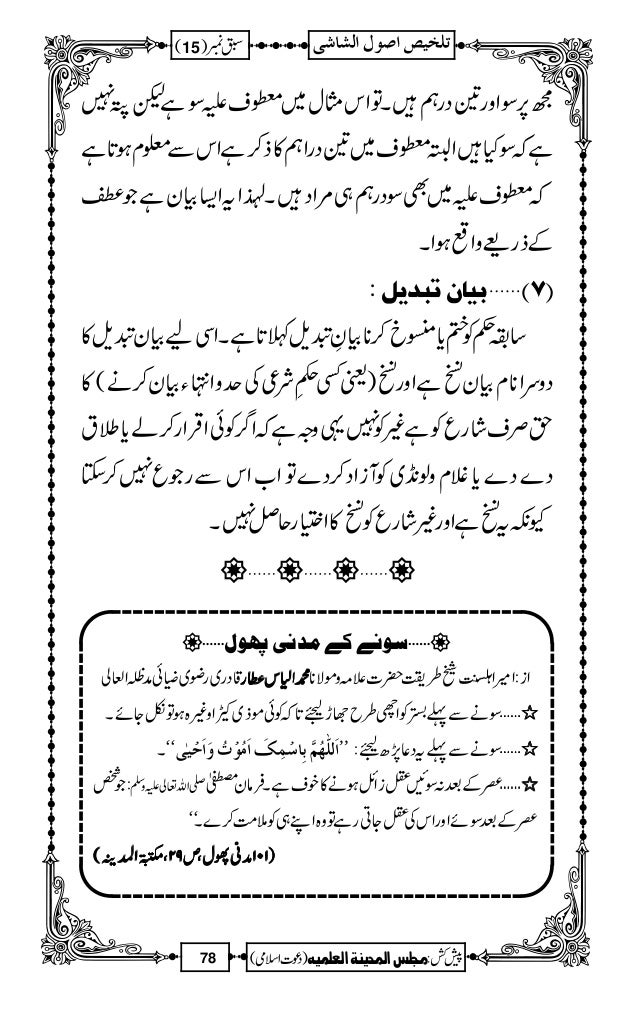 تلخیص اصول الشاشی سبق نمبر (15)
مجھ پر سو اور تین درہم ہیں۔ تو اس مثال میں معطوف علیہ سو ہے لیکن پتہ نہیں
ہے کہ سو کیا ہیں البتہ معطوف میں تین دراہم کا ذکر ہے اس سے معلوم ہوتا ہے
کہ معطوف علیہ میں بھی سو درہم ہی مراد ہیں ۔ لہذا یہ ایسا بیان ہے جو عطف
کے ذریعے واقع ہوا۔
(۷)......بیان تبدیل :
سابقہ حکم کو ختم یا منسوخ کرنا بیانِ تبدیل کہلاتا ہے۔ اسی لیے بیان تبدیل کا
دوسرا نام بیان نسخ ہے اور نسخ (یعنی کسی حکمِ شرعی کی حد و انتہاء بیان کرنے ) کا
حق صرف شارع کو ہے غیر کو نہیں یہی وجہ ہے کہ اگر کوئی اقرار کرلے یا طلاق
دے دے یا غلام ولونڈی کو آزاد کر دے تو اب اس سے رجوع نہیں کرسکتا
کیونکہ یہ نسخ ہے اور غیر شارع کو نسخ کا اختیار حاصل نہیں ۔
......سونے کے مدنی پھول......
از: امیر اہلسنت شیخ طریقت حضرت علامہ ومولانا محمد الیاس عطار قادری رضوی ضیائی مدظلہ العالی
☆.....سونے سے پہلے بستر کو اچھی طرح جھاڑ لیجئے تاکہ کوئی موذی کیڑا وغیرہ ہو تو نکل جائے ۔
☆.....سونے سے پہلے یہ دعا پڑھ لیجئے : ’’اَللّٰهُمَّ بِاسْمِکَ اَمُوْتُ وَاَحْیٰی‘‘۔
☆.....عصر کے بعد نہ سوئیں عقل زائل ہونے کا خوف ہے ۔ فرمان مصطفیٰ صلی اللہ تعالی علیہ وسلم: جو شخص
عصر کے بعد سوئے اور اس کی عقل جاتی رہے تو وہ اپنے ہی کو ملامت کرے ۔‘‘
(۱۰۱ مدنی پھول، ص۲۹، مکتبۃ المدینہ)
پیش کش: مجلس المدینۃ العلمیہ (دعوت اسلامی) 78